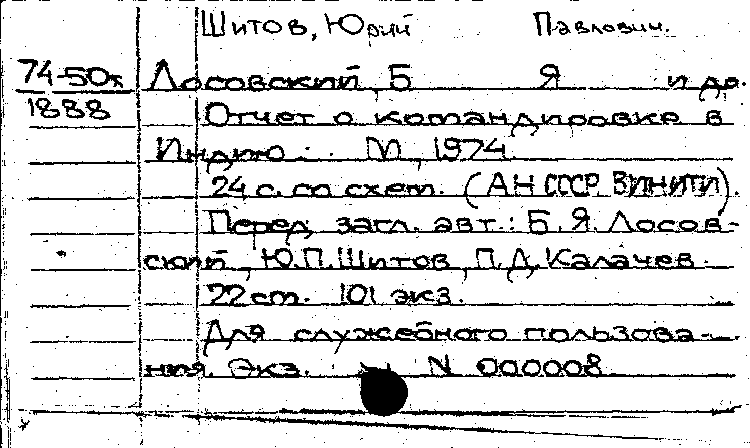 Шитов, Юрий Павлович.
74-50х Лосовский, Б Я и др.
1888 Отчет о командировке в
Индию. М, 1974
24 с. со схем. (АН СССР. ВИНИТИ).
Перед загл. авт.: Б.Я. Лосов-
ский, Ю.П. Шитов, П.Д. Калачев.
22 cm. 101 экз.
Для служебного пользова-
ния. Экз. N 000008